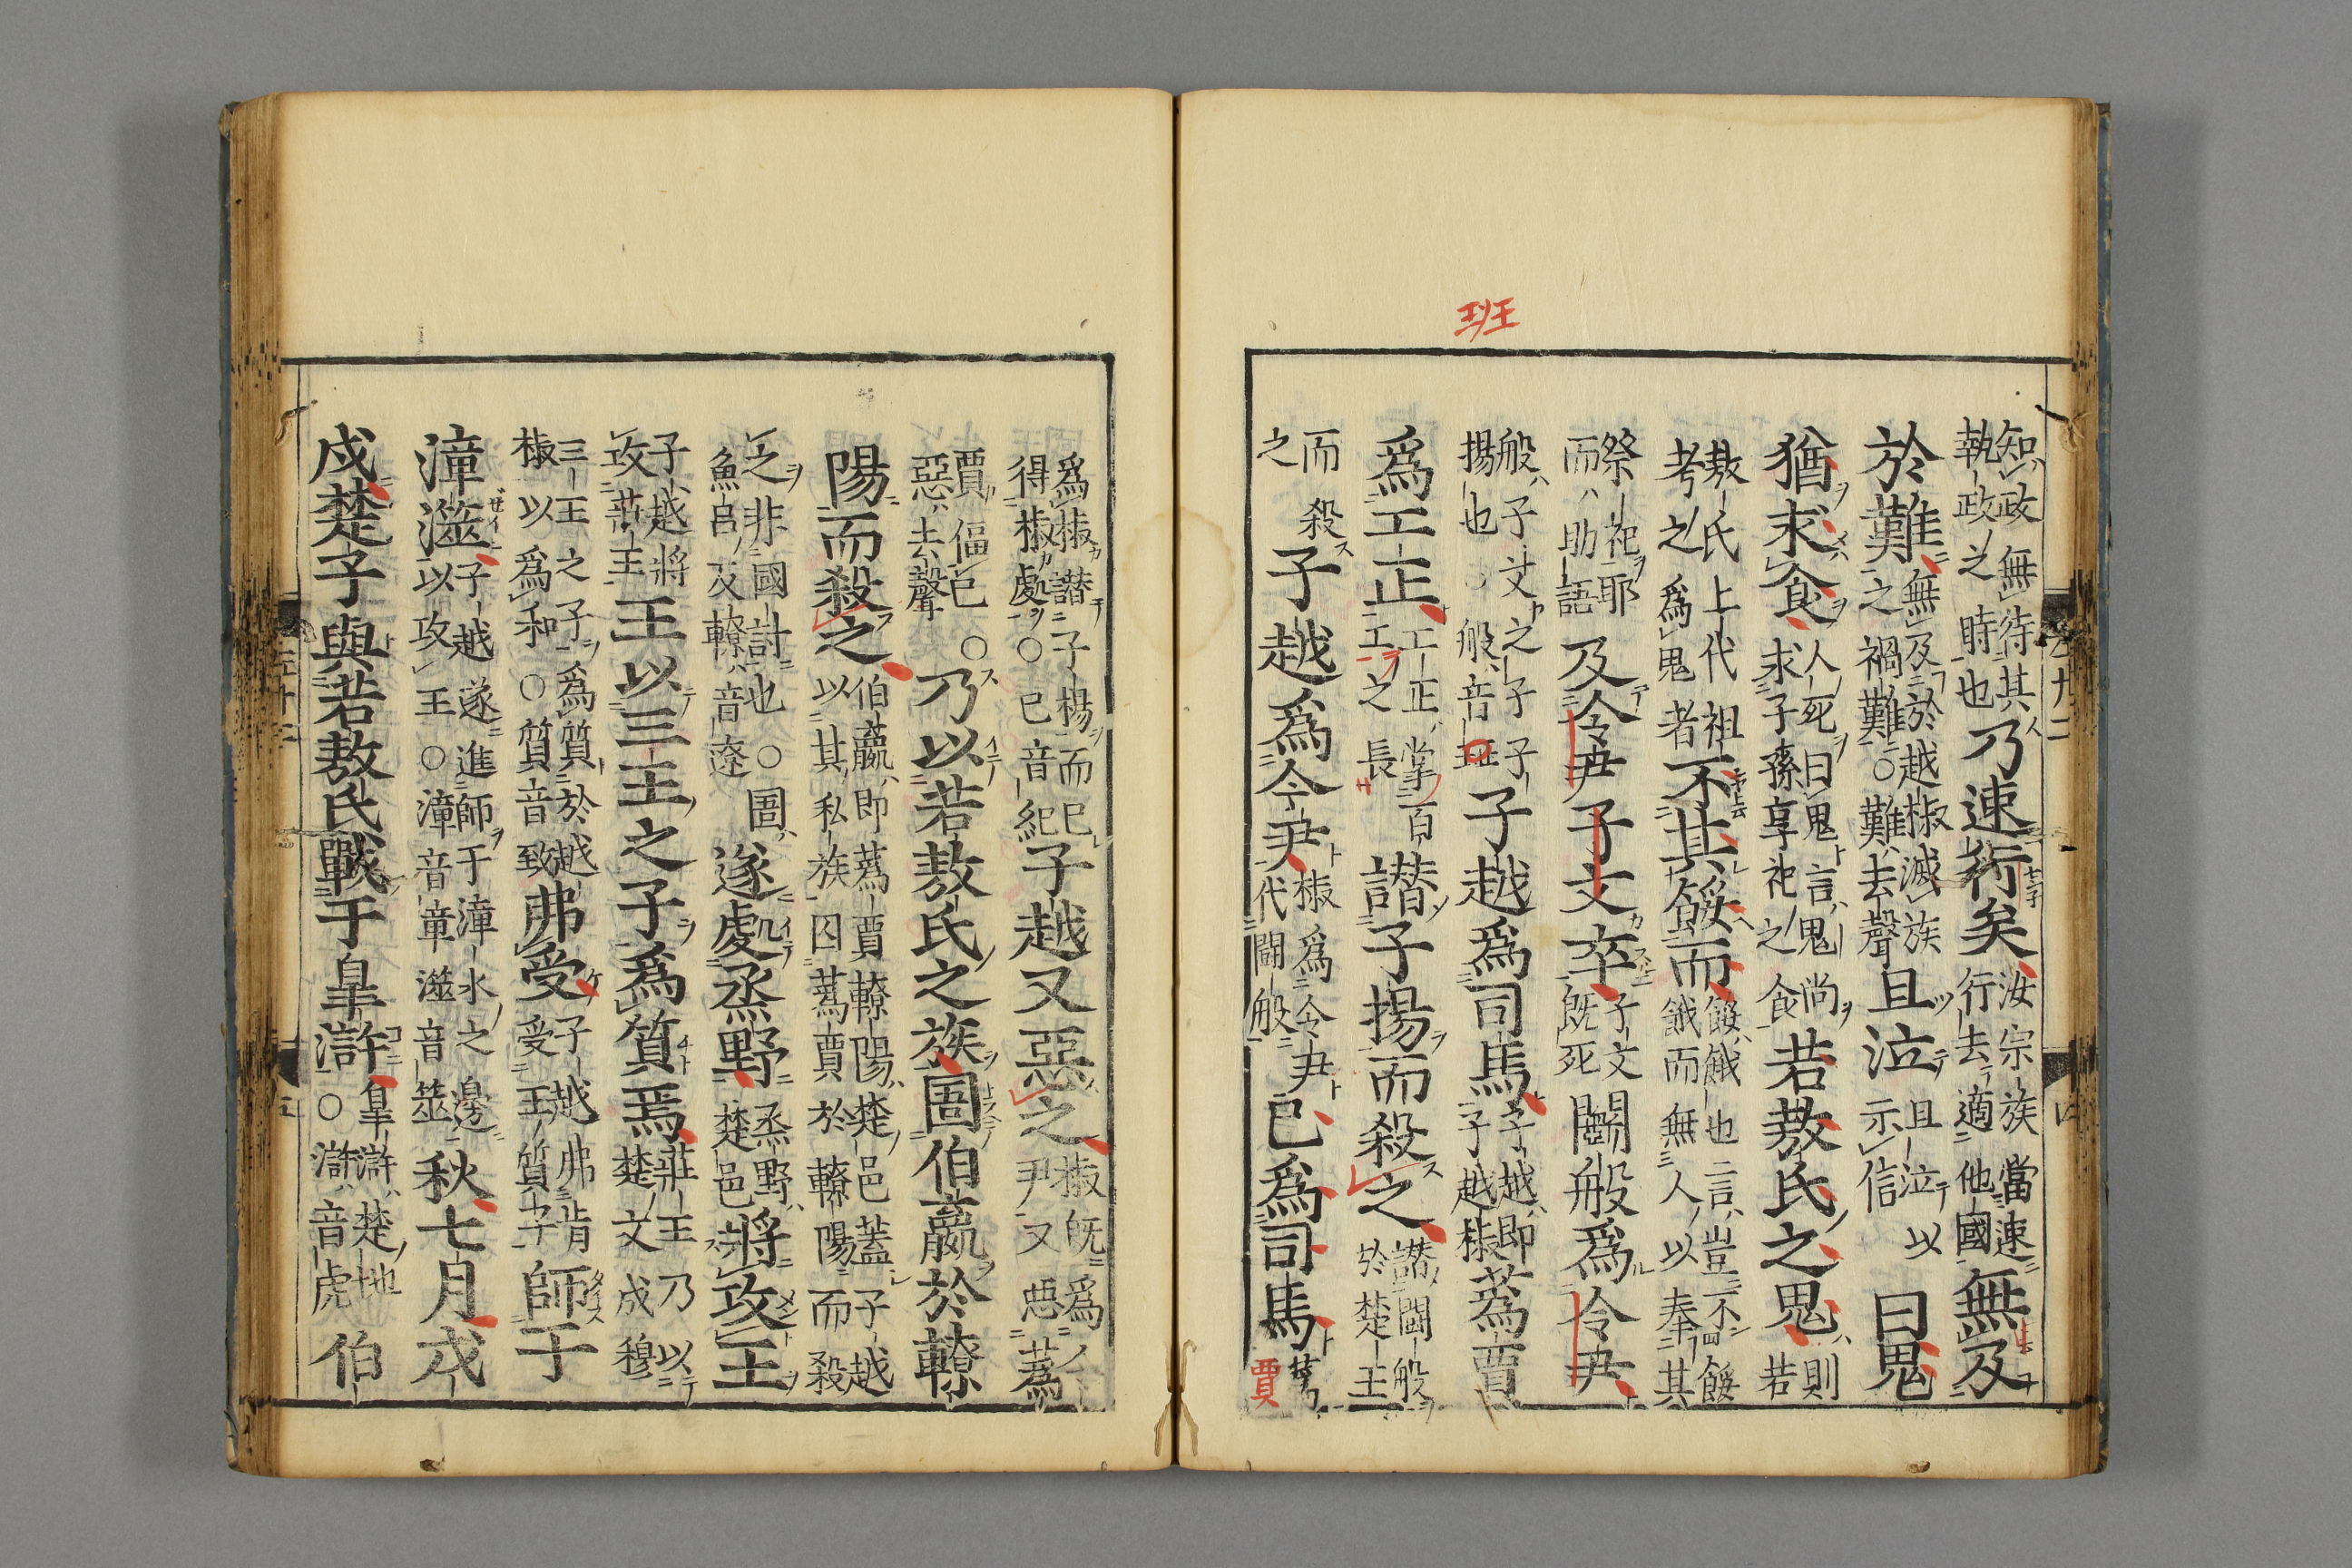 班
知政無待其
執政之時也
乃速行矣
汝宗族當速
行去適他國
無及
於難
無及於越椒滅族
之禍難○難去聲
且泣
且泣以
示信
曰鬼
猶求食
人死曰鬼言鬼尚
求子孫享祀之食
若敖氏之鬼
則
若
敖氏上代祖
考之爲鬼者
不其餒而
餒餓也言豈不餒
餓而無人以奉其
祭祀耶
而助語
及令尹子文卒
子文
既死
鬭般爲令尹
般子文之子子
揚也般音班
子越爲司馬
子越即
子越椒
蒍賈
爲工正
工正掌百
工之長
譖子揚而殺之
譖鬭般
於楚王
而殺
之
子越爲令尹
椒爲令尹
代鬭般
己爲司馬
蒍
賈
爲椒譖子揚而己
得椒處○己音紀
子越又惡之
椒既爲
尹又惡蒍
賈偪己○
惡去聲
乃以若敖氏之族圄伯嬴於轑
陽而殺之
伯嬴即蒍賈轑陽楚邑蓋子越
以其私族囚蒍賈於轑陽而殺
之非國討也○圄
魚呂反轑音遼
遂處烝野
烝野
楚邑
將攻王
子越將
攻莊王
王以三王之子爲質焉
莊王乃以
楚文成穆
三王之子爲質於越
椒以爲和○質音致
弗受
子越弗肯
受王質子
師于
漳澨
子越遂進師于漳水之邊
以攻王○漳音章澨音筮
秋七月戊
戌楚子與若敖氏戰于皐滸
皐滸楚地
○滸音虎
伯